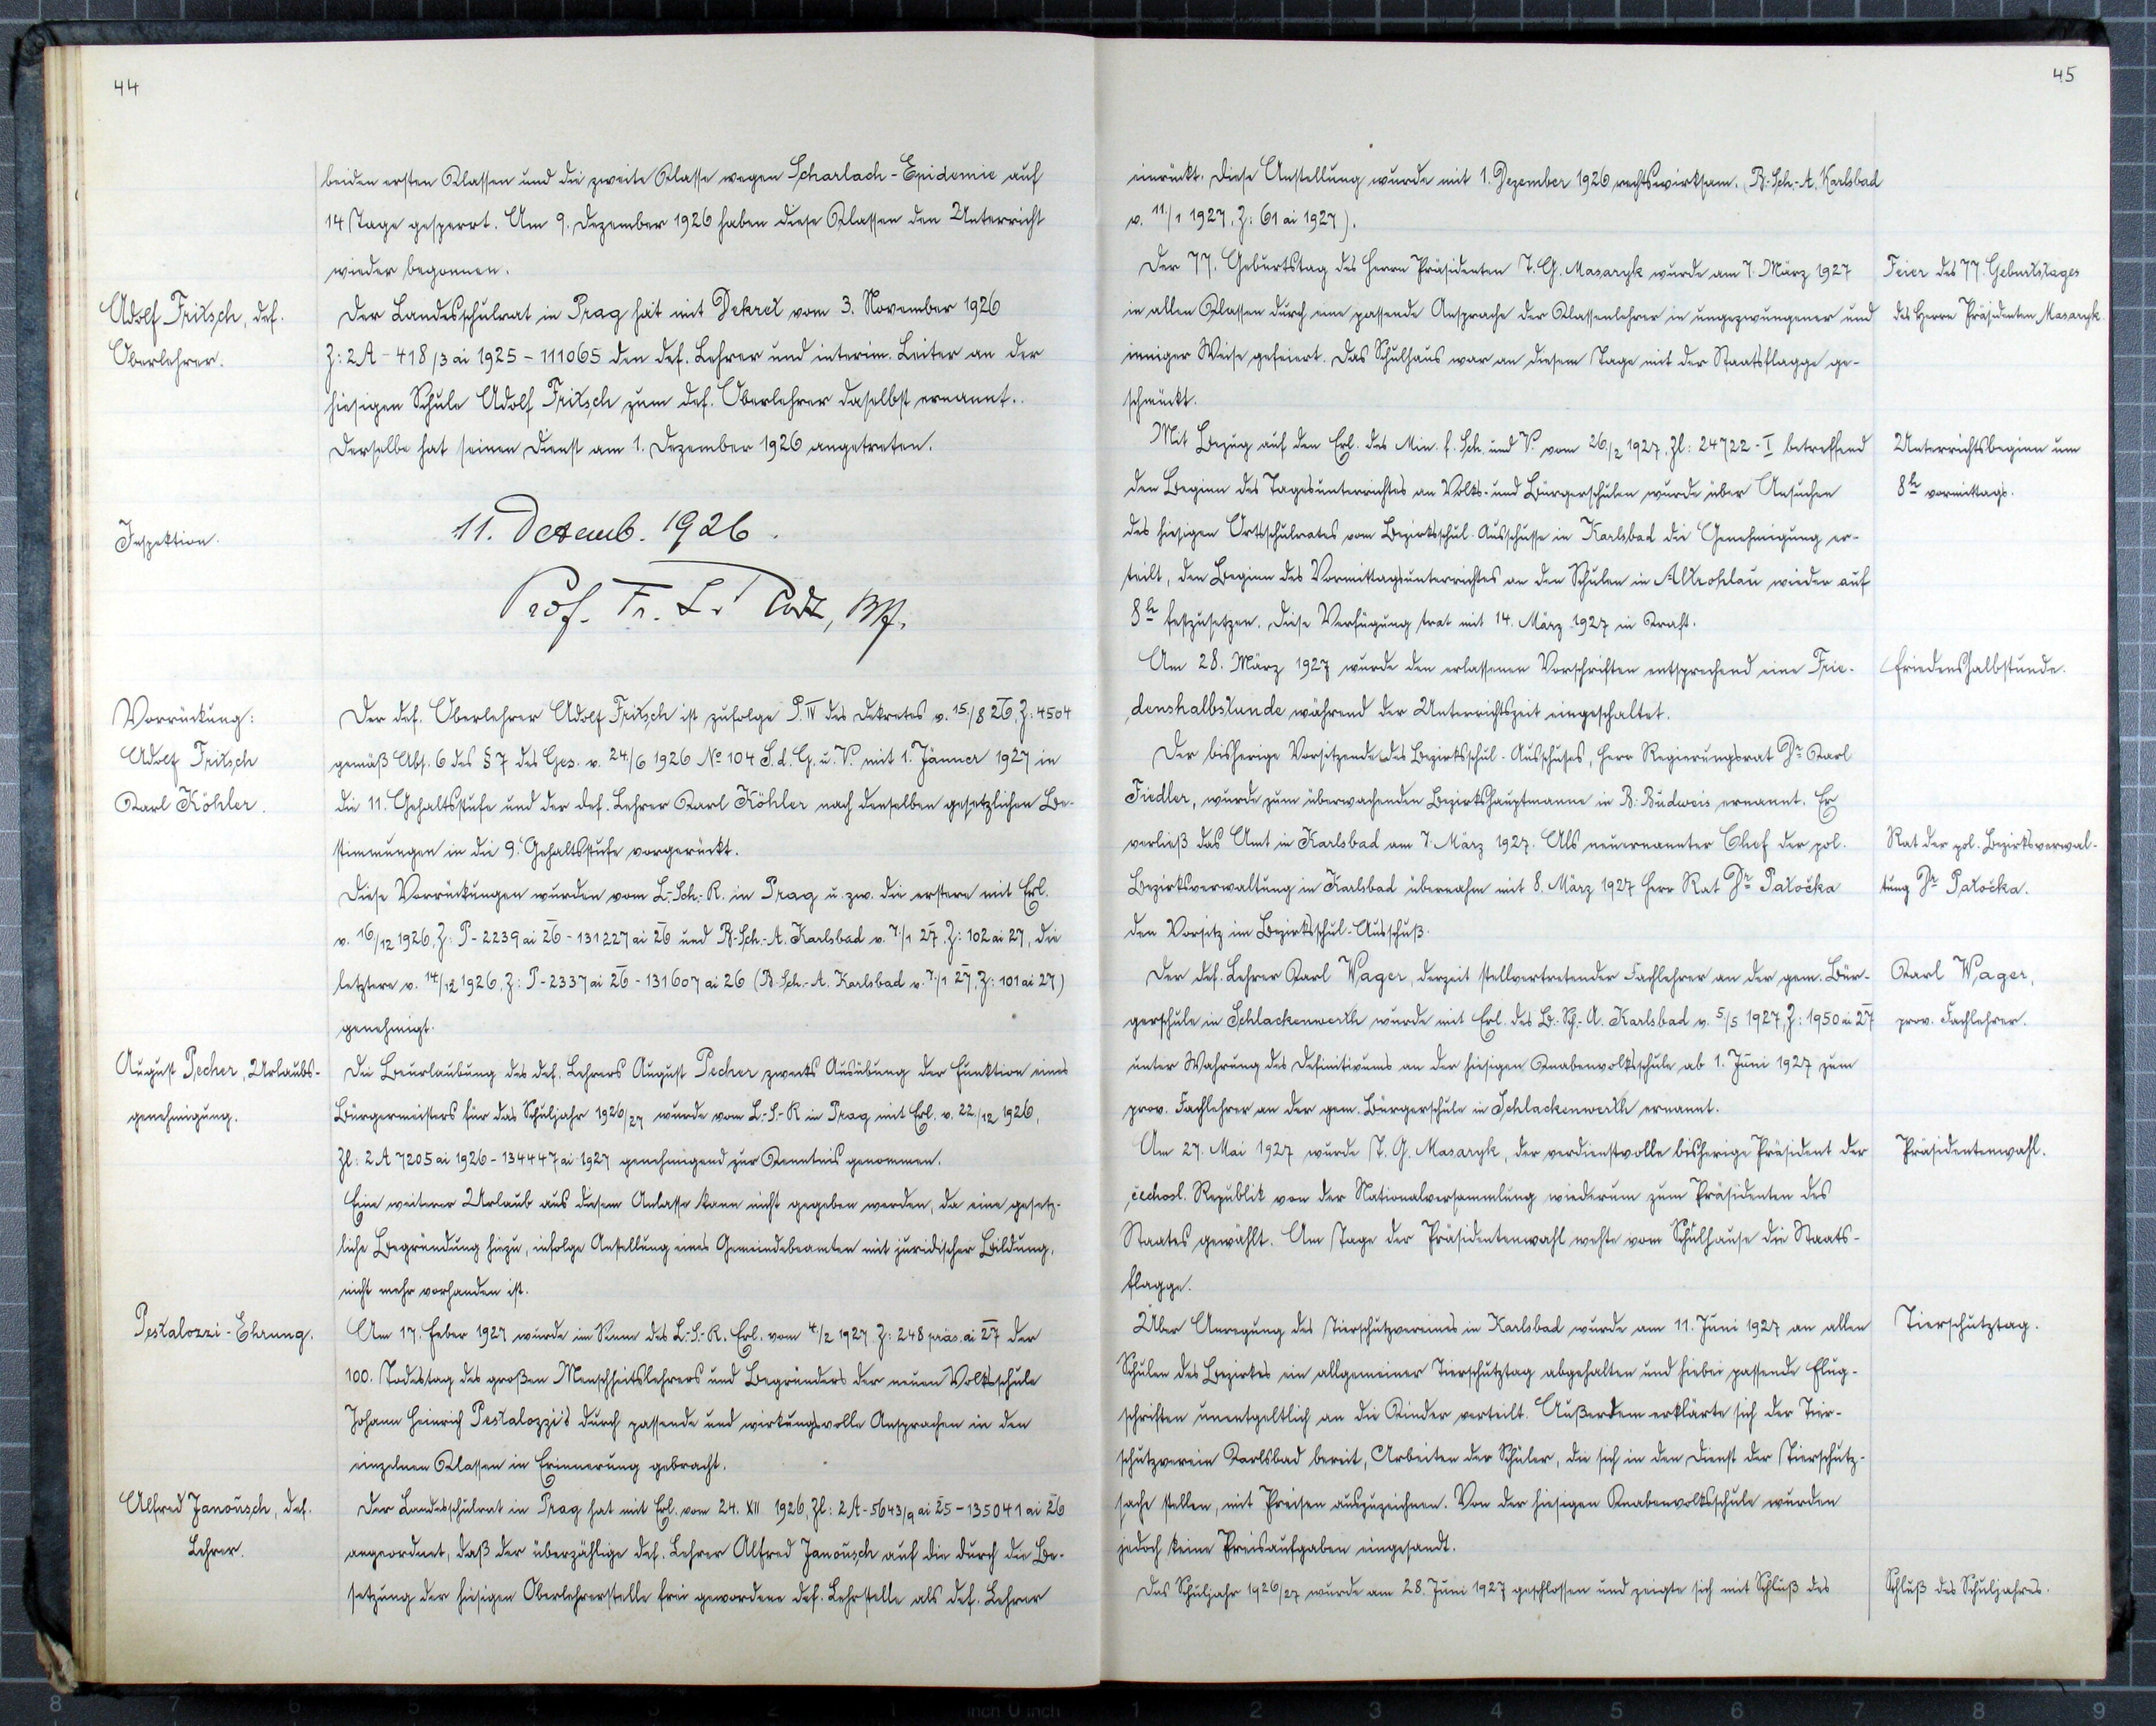 44
beiden ersten Klassen und die zweite Klasse wegen Scharlach-Epidemie auf
14 Tage gesperrt. Am 9. Dezember 1926 haben diese Klassen den Unterricht
wieder begonnen.
Adolf Fritsch, def.
Oberlehrer.
Der Landesschulrat in Prag hat mit Dekret vom 3. November 1926
Z: 2A - 418/3 ai 1925 - 111065 den def. Lehrer und interim. Leiter an der
hiesigen Schule Adolf Fritsch zum def. Oberlehrer daselbst ernannt.
Derselbe hat seinen Dienst am 1. Dezember 1926 angetreten.
Inspektion.
11. Dezemb. 1926.
Prof. Fr. L.
Vorrückung:
Adolf Fritsch
Karl Köhler.
Der def. Oberlehrer Adolf Fritsch ist zufolge P. IV des Dekretes v. 15./8 26, Z: 4504
gemäß Abs. 6 des § 7 des Ges. v. 24./6 1926 No 104 S. d. G. u. V. mit 1. Jänner 1927 in
die 11. Gehaltsstufe und der def. Lehrer Karl Köhler nach denselben gesetzlichen Be-
stimmungen in die 9. Gehaltsstufe vorgerückt.
Diese Vorrückungen wurden vom L.-Sch.-R. in Prag u. zw. die erstere mit Erl.
v. 16/12 1926, Z: P-2239 ai 26 - 131227 ai 26 und B.-Sch.-A. Karlsbad v. 7./1 27, Z: 102 ai 27, die
letztere v. 14/12 1926, Z: P-2337 ai 26 - 131607 ai 26 (B.-Sch.-A. Karlsbad v. 7./1 27, Z: 101 ai 27)
genehmigt.
August Pecher, Urlaubs-
genehmigung.
Die Beurlaubung des def. Lehrers August Pecher zwecks Ausübung der Funktion eines
Bürgermeisters für das Schuljahr 1926/27 wurde vom L.-S.-R in Prag mit Erl. v. 22./12 1926,
Zl: 2A 7205 ai 1926 - 134447 ai 1927 genehmigend zur Kenntnis genommen.
Ein weiterer Urlaub aus diesem Anlasse kann nicht gegeben werden, da eine gesetz-
liche Begründung hiezu, infolge Anstellung eines Gemeindebeamten mit juridischer Bildung,
nicht mehr vorhanden ist.
Pestalozzi-Ehrung.
Am 17. Feber 1927 wurde im Sinne des L.-S.-R. Erl. vom 4/2 1927 Z: 248 präs. ai 27 der
100. Todestag des großen Menschheitslehrers und Begründers der neuen Volksschule
Johann Heinrich Pestalozzi's durch passende und wirkungsvolle Ansprachen in den
einzelnen Klassen in Erinnerung gebracht.
Alfred Janousch, def.
Lehrer.
Der Landesschulrat in Prag hat mit Erl. vom 24. XII 1926, Zl: 2A-5643/9 ai 25 - 135041 ai 26
angeordnet, daß der überzählige def. Lehrer Alfred Janousch auf die durch die Be-
setzung der hiesigen Oberlehrerstelle frei gewordene def. Lehrstelle als def. Lehrer
45
einrückt. Diese Anstellung wurde mit 1. Dezember 1926 rechtswirksam. (B.-Sch.-A. Karlsbad
v. 11./1 1927, Z: 61 ai 1927).
Der 77. Geburtstag des Herrn Präsidenten T. G. Masaryk wurde am 7. März 1927
in allen Klassen durch eine passende Ansprache der Klassenlehrer in ungezwungener und
inniger Weise gefeiert. Das Schulhaus war an diesem Tage mit der Staatsflagge ge-
schmückt.
Feier des 77. Geburtstages
des Herrn Präsidenten Masaryk.
Mit Bezug auf den Erl. des Min. f. Sch. und V. vom 26./2 1927, Zl: 24722-I betreffend
den Beginn des Tagesunterrichtes an Volks- und Bürgerschulen wurde über Ansuchen
des hiesigen Ortsschulrates vom Bezirksschul-Ausschusse in Karlsbad die Genehmigung er-
teilt, den Beginn des Vormittagsunterrichtes an den Schulen in Altrohlau wieder auf
8h festzusetzen. Diese Verfügung trat mit 14. März 1927 in Kraft.
Unterrichtsbeginn um
8h vormittags.
Am 28. März 1927 wurde den erlassenen Vorschriften entsprechend eine Frie-
denshalbstunde während der Unterrichtszeit eingeschaltet.
Friedenshalbstunde.
Der bisherige Vorsitzende des Bezirksschul-Ausschusses, Herr Regierungsrat Dr Karl
Fiedler, wurde zum überwachenden Bezirkshauptmanne in B. Budweis ernannt. Er
verließ das Amt in Karlsbad am 7. März 1927. Als neuernannter Chef der pol.
Bezirksverwaltung in Karlsbad übernahm mit 8. März 1927 Herr Rat Dr Patočka
den Vorsitz im Bezirksschul-Ausschuß.
Rat der pol. Bezirksverwal-
tung Dr Patočka.
Der def. Lehrer Karl Wager, derzeit stellvertretender Fachlehrer an der gem. Bür-
gerschule in Schlackenwerth wurde mit Erl. des B.-Sch.-A. Karlsbad v. 5/5 1927, Z: 1950 ai 27
unter Wahrung des Definitivums an der hiesigen Knabenvolksschule ab 1. Juni 1927 zum
prov. Fachlehrer an der gem. Bürgerschule in Schlackenwerth ernannt.
Karl Wager,
prov. Fachlehrer.
Am 27. Mai 1927 wurde T. G. Masaryk, der verdienstvolle bisherige Präsident der
čechosl. Republik von der Nationalversammlung wiederum zum Präsidenten des
Staates gewählt. Am Tage der Präsidentenwahl wehte vom Schulhause die Staats-
flagge.
Präsidentenwahl.
Über Anregung des Tierschutzvereines in Karlsbad wurde am 11. Juni 1927 an allen
Schulen des Bezirkes ein allgemeiner Tierschutztag abgehalten und hiebei passende Flug-
schriften unentgeltlich an die Kinder verteilt. Außerdem erklärte sich der Tier-
schutzverein Karlsbad bereit, Arbeiten der Schüler, die sich in den Dienst der Tierschutz-
sache stellen, mit Preisen auszuzeichnen. Von der hiesigen Knabenvolksschule wurden
jedoch keine Preisaufgaben eingesandt.
Tierschutztag.
Das Schuljahr 1926/27 wurde am 28. Juni 1927 geschlossen und zeigte sich mit Schluß des
Schluß des Schuljahres.